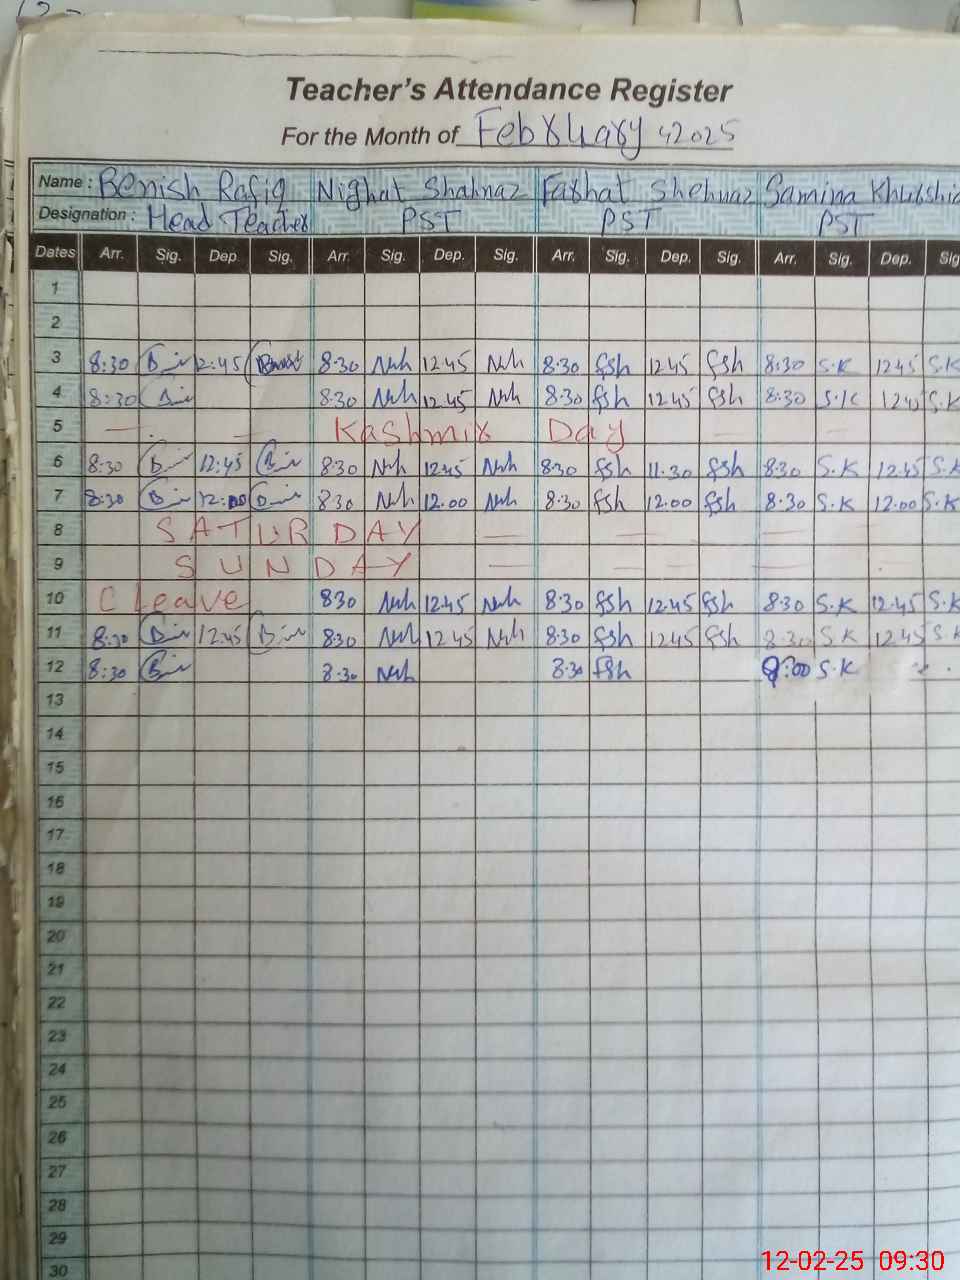 Teacher's Attendance Register
For the Month of February, 2025
Name : Benish Rafiq Nighat Shahnaz Farhat Shehnaz Samina Khurshid
Designation : Head Teacher PST PST PST
Dates Arr. Sig. Dep. Sig. Arr. Sig. Dep. Sig. Arr. Sig. Dep. Sig. Arr. Sig. Dep. Sig
1
2
3 8:30 2:45 8.30 Nsh 12.45 Nsh 8.30 fsh 12.45 fsh 8:30 S.K 12.45 S.K
4 8:30 8.30 Nsh 12.45 Nsh 8.30 fsh 12.45 fsh 8:30 S.K S.K
5 Kashmir Day
6 8:30 12:45 8.30 Nsh 12.45 Nsh 8.30 fsh 11.30 fsh 8.30 S.K 12.45 S.K
7 8:30 12:00 8.30 Nsh 12.00 Nsh 8.30 fsh 12.00 fsh 8:30 S.K 12.00 S.K
8 SATURDAY
9 SUNDAY
10 C leave 830 Nsh 12.45 Nsh 8.30 fsh 12.45 fsh 8:30 S.K 12.45 S.K
11 8:30 12:45 8.30 Nsh 12.45 Nsh 8.30 fsh 12.45 fsh 8.30 S.K 12.45 S.K
12 8:30 8.30 Nsh 8.30 fsh 9:00 S.K
13
14
15
16
17
18
19
20
21
22
23
24
25
26
27
28
29
30
12-02-25 09:30